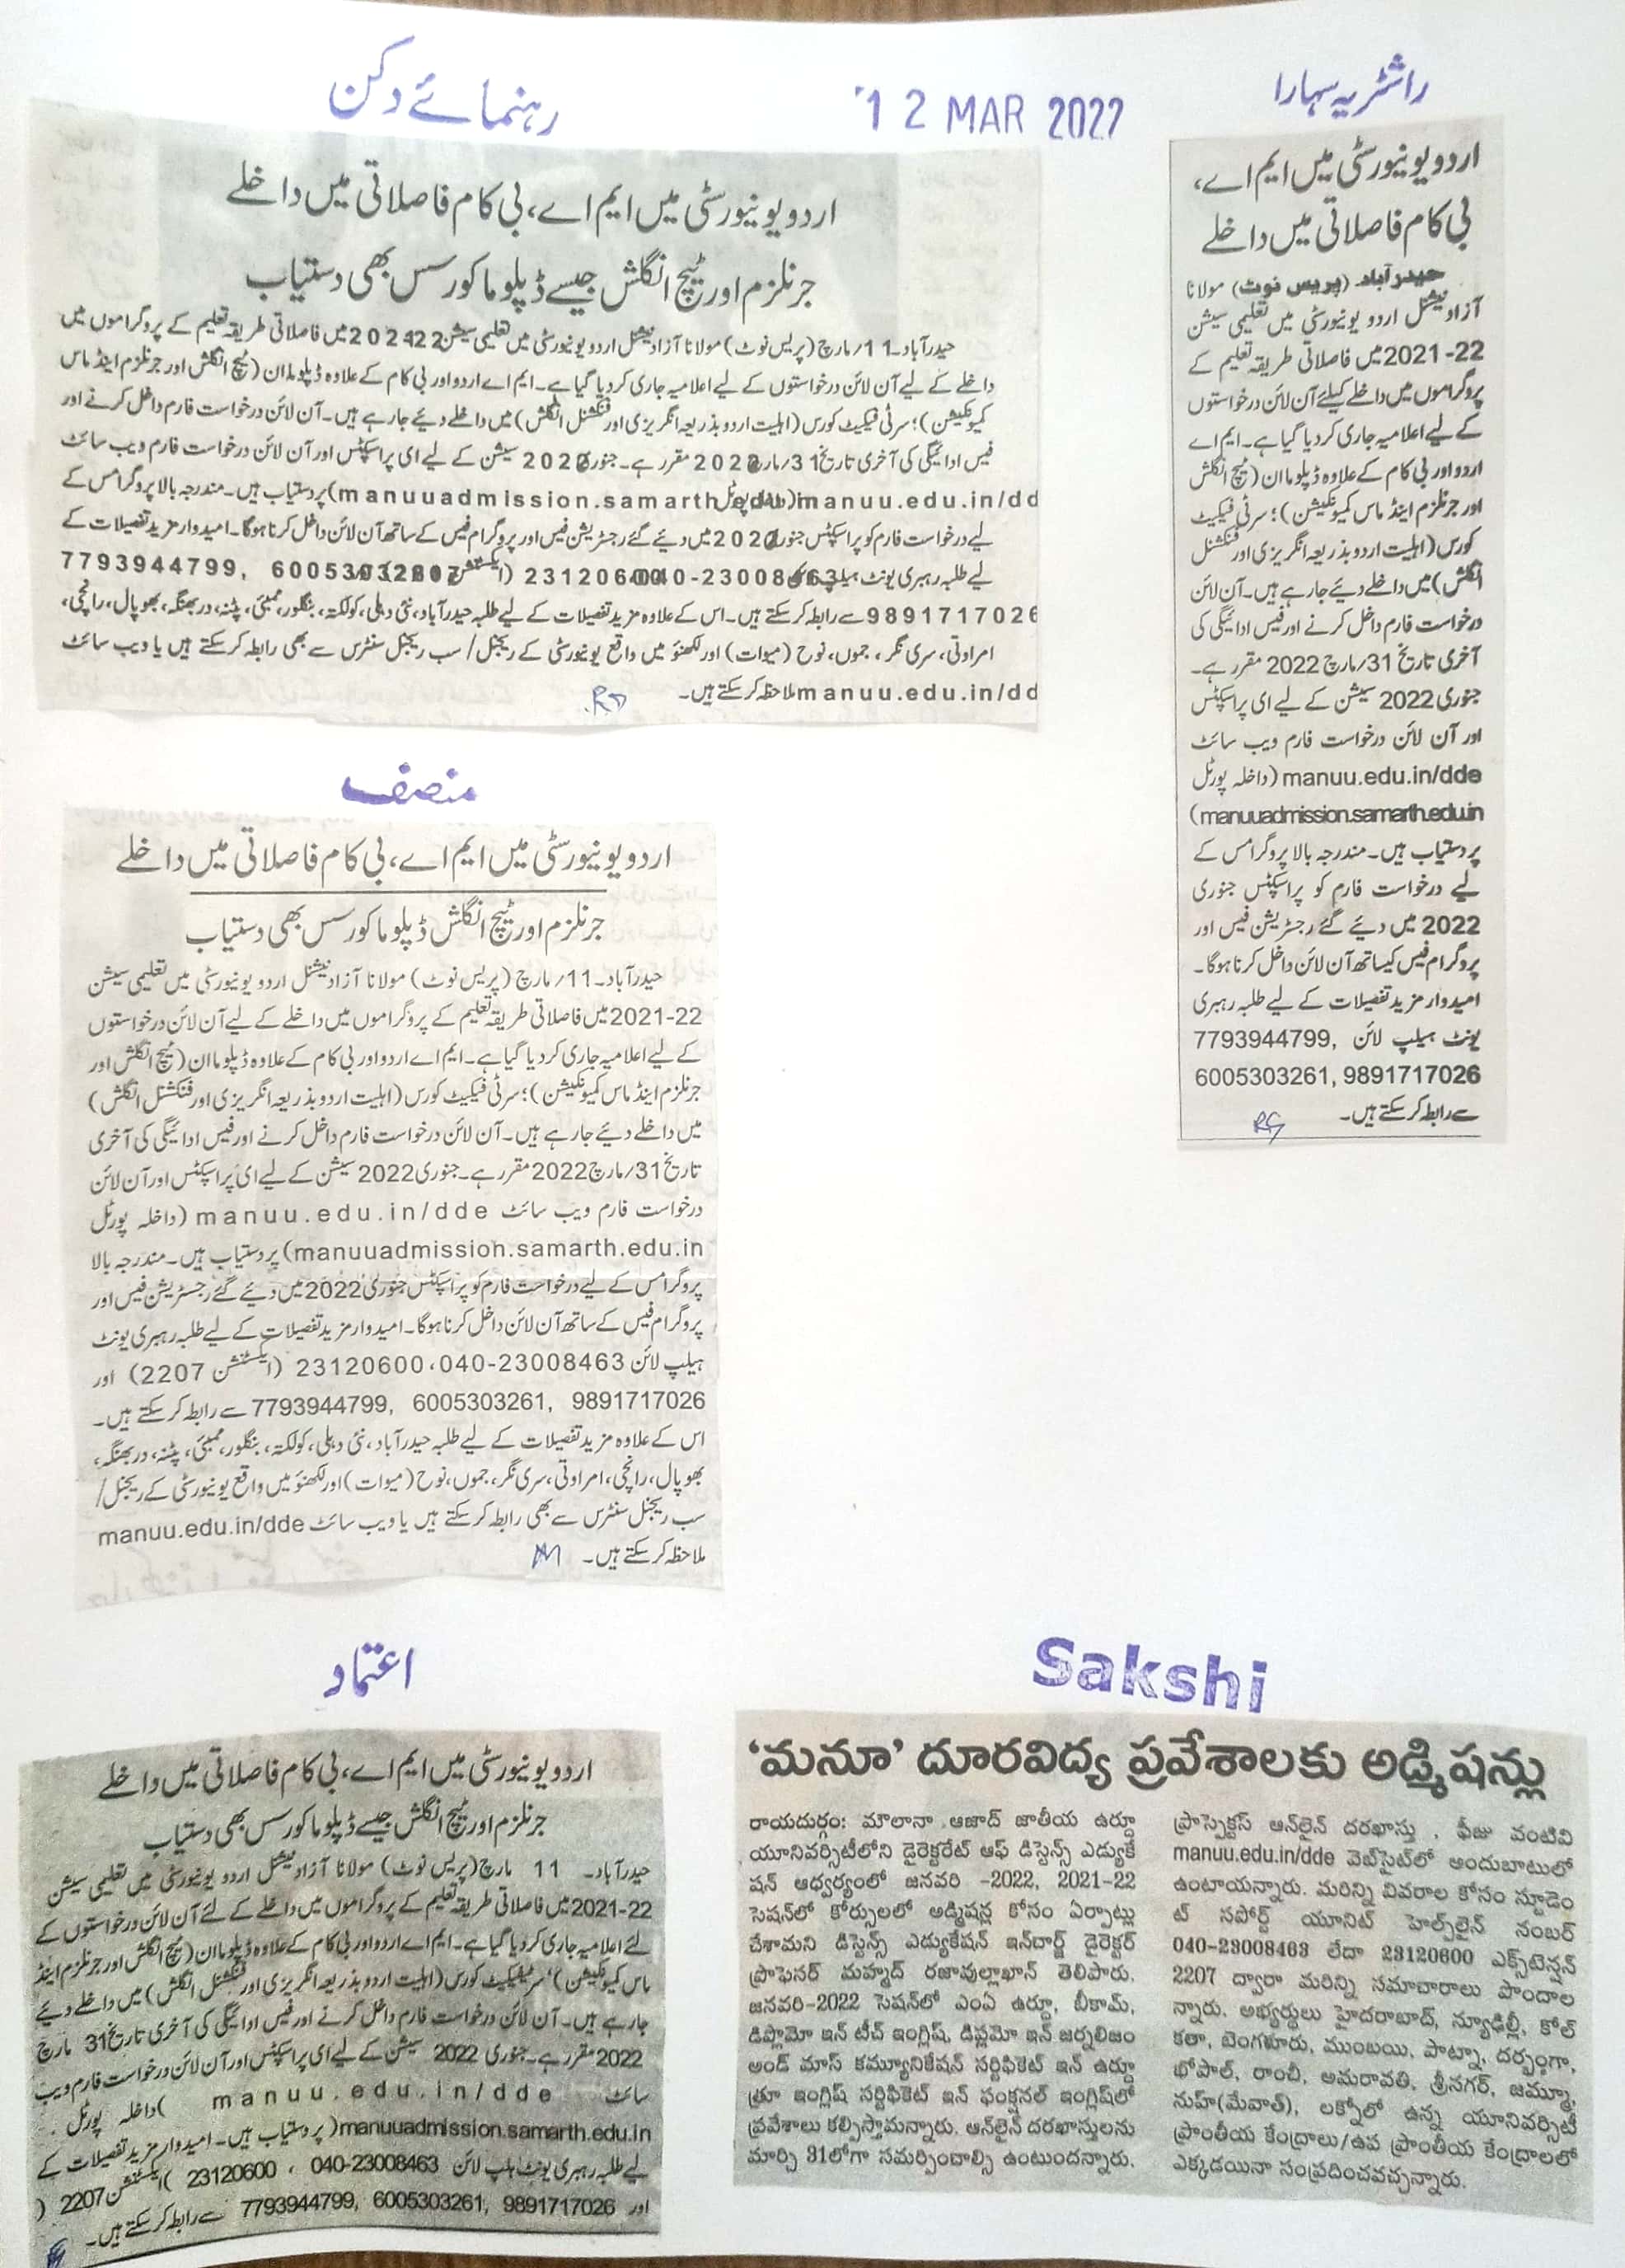 رہنمائے دکن
12 MAR 2022
راشٹریہ سہارا
اردو یونیورسٹی میں ایم اے، بی کام فاصلاتی میں داخلے
جرنلزم اور ٹیچ انگلش جیسے ڈپلوما کورسس بھی دستیاب
حیدرآباد۔11/مارچ (پریس نوٹ) مولانا آزاد نیشنل اردو یونیورسٹی میں تعلیمی سیشن میں فاصلاتی طریقہ تعلیم کے پروگراموں میں
داخلے کے لیے آن لائن درخواستوں کے لیے اعلامیہ جاری کردیا گیا ہے۔ ایم اے اردو اور بی کام کے علاوہ ڈپلوما ان (ٹیچ انگلش اور جرنلزم اینڈ ماس
کمیونکیشن)؛ سرٹی فیکیٹ کورس (اہلیت اردو بذریعہ انگریزی اور فنکشنل انگلش) میں داخلے دیئے جارہے ہیں۔ آن لائن درخواست فارم داخل کرنے اور
فیس ادائیگی کی آخری تاریخ 31/مارچ مقرر ہے۔ جنوری سیشن کے لیے ای پراسپکٹس اور آن لائن درخواست فارم ویب سائٹ
manuu.edu.in/dd (manuuadmission.samarth پر دستیاب ہیں۔ مندرجہ بالا پروگرامس کے
لیے درخواست فارم کو پراسپکٹس جنوری میں دیئے گئے رجسٹریشن فیس اور پروگرام فیس کے ساتھ آن لائن داخل کرنا ہوگا۔ امیدوار مزید تفصیلات کے
لیے طلبہ رہبری یونٹ 7793944799,
9891717026 سے رابطہ کرسکتے ہیں۔ اس کے علاوہ مزید تفصیلات کے لیے طلبہ حیدرآباد، نئی دہلی، کولکتہ، بنگلور، ممبئی، پٹنہ، دربھنگہ، بھوپال، رانچی،
امراوتی، سری نگر، جموں، نوح (میوات) اور لکھنؤ میں واقع یونیورسٹی کے ریجنل/ سب ریجنل سنٹرس سے بھی رابطہ کرسکتے ہیں یا ویب سائٹ
manuu.edu.in/dd ملاحظہ کرسکتے ہیں۔
اردو یونیورسٹی میں ایم اے،
بی کام فاصلاتی میں داخلے
حیدرآباد (پریس نوٹ) مولانا
آزاد نیشنل اردو یونیورسٹی میں تعلیمی سیشن
2021-22 میں فاصلاتی طریقہ تعلیم کے
پروگراموں میں داخلے کیلئے آن لائن درخواستوں
کے لیے اعلامیہ جاری کردیا گیا ہے۔ ایم اے
اردو اور بی کام کے علاوہ ڈپلوما ان (ٹیچ انگلش
اور جرنلزم اینڈ ماس کمیونکیشن)؛ سرٹی فیکیٹ
کورس (اہلیت اردو بذریعہ انگریزی اور فنکشنل
انگلش) میں داخلے دیئے جارہے ہیں۔ آن لائن
درخواست فارم داخل کرنے اور فیس ادائیگی کی
آخری تاریخ 31/مارچ 2022 مقرر ہے۔
جنوری 2022 سیشن کے لیے ای پراسپکٹس
اور آن لائن درخواست فارم ویب سائٹ
manuu.edu.in/dde (داخلہ پورٹل
(manuuadmission.samarth.edu.in
پر دستیاب ہیں۔ مندرجہ بالا پروگرامس کے
لیے درخواست فارم کو پراسپکٹس جنوری
2022 میں دیئے گئے رجسٹریشن فیس اور
پروگرام فیس کیساتھ آن لائن داخل کرنا ہوگا۔
امیدوار مزید تفصیلات کے لیے طلبہ رہبری
یونٹ ہیلپ لائن 7793944799,
6005303261, 9891717026
سے رابطہ کرسکتے ہیں۔
منصف
اردو یونیورسٹی میں ایم اے، بی کام فاصلاتی میں داخلے
جرنلزم اور ٹیچ انگلش ڈپلوما کورسس بھی دستیاب
حیدرآباد۔11/مارچ (پریس نوٹ) مولانا آزاد نیشنل اردو یونیورسٹی میں تعلیمی سیشن
2021-22 میں فاصلاتی طریقہ تعلیم کے پروگراموں میں داخلے کے لیے آن لائن درخواستوں
کے لیے اعلامیہ جاری کردیا گیا ہے۔ ایم اے اردو اور بی کام کے علاوہ ڈپلوما ان (ٹیچ انگلش اور
جرنلزم اینڈ ماس کمیونکیشن)؛ سرٹی فیکیٹ کورس (اہلیت اردو بذریعہ انگریزی اور فنکشنل انگلش)
میں داخلے دیئے جارہے ہیں۔ آن لائن درخواست فارم داخل کرنے اور فیس ادائیگی کی آخری
تاریخ 31/مارچ 2022 مقرر ہے۔ جنوری 2022 سیشن کے لیے ای پراسپکٹس اور آن لائن
درخواست فارم ویب سائٹ manuu.edu.in/dde (داخلہ پورٹل
manuuadmission.samarth.edu.in) پر دستیاب ہیں۔ مندرجہ بالا
پروگرامس کے لیے درخواست فارم کو پراسپکٹس جنوری 2022 میں دیئے گئے رجسٹریشن فیس اور
پروگرام فیس کے ساتھ آن لائن داخل کرنا ہوگا۔ امیدوار مزید تفصیلات کے لیے طلبہ رہبری یونٹ
ہیلپ لائن 040-23008463، 23120600 (ایکسٹنشن 2207) اور
7793944799, 6005303261, 9891717026 سے رابطہ کرسکتے ہیں۔
اس کے علاوہ مزید تفصیلات کے لیے طلبہ حیدرآباد، نئی دہلی، کولکتہ، بنگلور، ممبئی، پٹنہ، دربھنگہ،
بھوپال، رانچی، امراوتی، سری نگر، جموں، نوح (میوات) اور لکھنؤ میں واقع یونیورسٹی کے ریجنل/
سب ریجنل سنٹرس سے بھی رابطہ کرسکتے ہیں یا ویب سائٹ manuu.edu.in/dde
ملاحظہ کرسکتے ہیں۔
اعتماد
اردو یونیورسٹی میں ایم اے، بی کام فاصلاتی میں داخلے
جرنلزم اور ٹیچ انگلش جیسے ڈپلوما کورسس بھی دستیاب
حیدرآباد۔ 11 مارچ (پریس نوٹ) مولانا آزاد نیشنل اردو یونیورسٹی میں تعلیمی سیشن
2021-22 میں فاصلاتی طریقہ تعلیم کے پروگراموں میں داخلے کے لئے آن لائن درخواستوں کے
لئے اعلامیہ جاری کردیا گیا ہے۔ ایم اے اردو اور بی کام کے علاوہ ڈپلوما ان (ٹیچ انگلش اور جرنلزم اینڈ
ماس کمیونکیشن)' سرٹیفکیٹ کورس (اہلیت اردو بذریعہ انگریزی اور فنکشنل انگلش) میں داخلے دیئے
جارہے ہیں۔ آن لائن درخواست فارم داخل کرنے اور فیس ادائیگی کی آخری تاریخ 31 مارچ
2022 مقرر ہے۔ جنوری 2022 سیشن کے لیے ای پراسپکٹس اور آن لائن درخواست فارم ویب
سائٹ manuu.edu.in/dde (داخلہ پورٹل
manuuadmission.samarth.edu.in) پر دستیاب ہیں۔ امیدوار مزید تفصیلات کے
لیے طلبہ رہبری یونٹ ہلپ لائن 040-23008463 ، 23120600 (ایکسٹنشن 2207)
اور 7793944799, 6005303261, 9891717026 سے رابطہ کرسکتے ہیں۔
Sakshi
‘మనూ’ దూరవిద్య ప్రవేశాలకు అడ్మిషన్లు
రాయదుర్గం: మౌలానా ఆజాద్ జాతీయ ఉర్దూ
యూనివర్సిటీలోని డైరెక్టరేట్ ఆఫ్ డిస్టెన్స్ ఎడ్యుకే
షన్ ఆధ్వర్యంలో జనవరి -2022, 2021-22
సెషన్‌లో కోర్సులలో అడ్మిషన్ల కోసం ఏర్పాట్లు
చేశామని డిస్టెన్స్ ఎడ్యుకేషన్ ఇన్‌చార్జి డైరెక్టర్
ప్రొఫెసర్ మహ్మద్ రజావుల్లాఖాన్ తెలిపారు.
జనవరి-2022 సెషన్‌లో ఎంఏ ఉర్దూ, బీకామ్,
డిప్లొమో ఇన్ టీచ్ ఇంగ్లిష్, డిప్లమో ఇన్ జర్నలిజం
అండ్ మాస్ కమ్యూనికేషన్ సర్టిఫికెట్ ఇన్ ఉర్దూ
త్రూ ఇంగ్లిష్ సర్టిఫికెట్ ఇన్ ఫంక్షనల్ ఇంగ్లిష్‌లో
ప్రవేశాలు కల్పిస్తామన్నారు. ఆన్‌లైన్ దరఖాస్తులను
మార్చి 31లోగా సమర్పించాల్సి ఉంటుందన్నారు.
ప్రాస్పెక్టస్ ఆన్‌లైన్ దరఖాస్తు , ఫీజు వంటివి
manuu.edu.in/dde వెబ్‌సైట్‌లో అందుబాటులో
ఉంటాయన్నారు. మరిన్ని వివరాల కోసం స్టూడెం
ట్ సపోర్ట్ యూనిట్ హెల్ప్‌లైన్ నంబర్
040-23008463 లేదా 23120600 ఎక్స్‌టెన్షన్
2207 ద్వారా మరిన్ని సమాచారాలు పొందాల
న్నారు. అభ్యర్థులు హైదరాబాద్, న్యూఢిల్లీ, కోల్
కతా, బెంగళూరు, ముంబయి, పాట్నా, దర్భంగా,
భోపాల్, రాంచీ, అమరావతి, శ్రీనగర్, జమ్మూ,
నుహ్(మేవాత్), లక్నోలో ఉన్న యూనివర్సిటీ
ప్రాంతీయ కేంద్రాలు/ఉప ప్రాంతీయ కేంద్రాలలో
ఎక్కడయినా సంప్రదించవచ్చన్నారు.